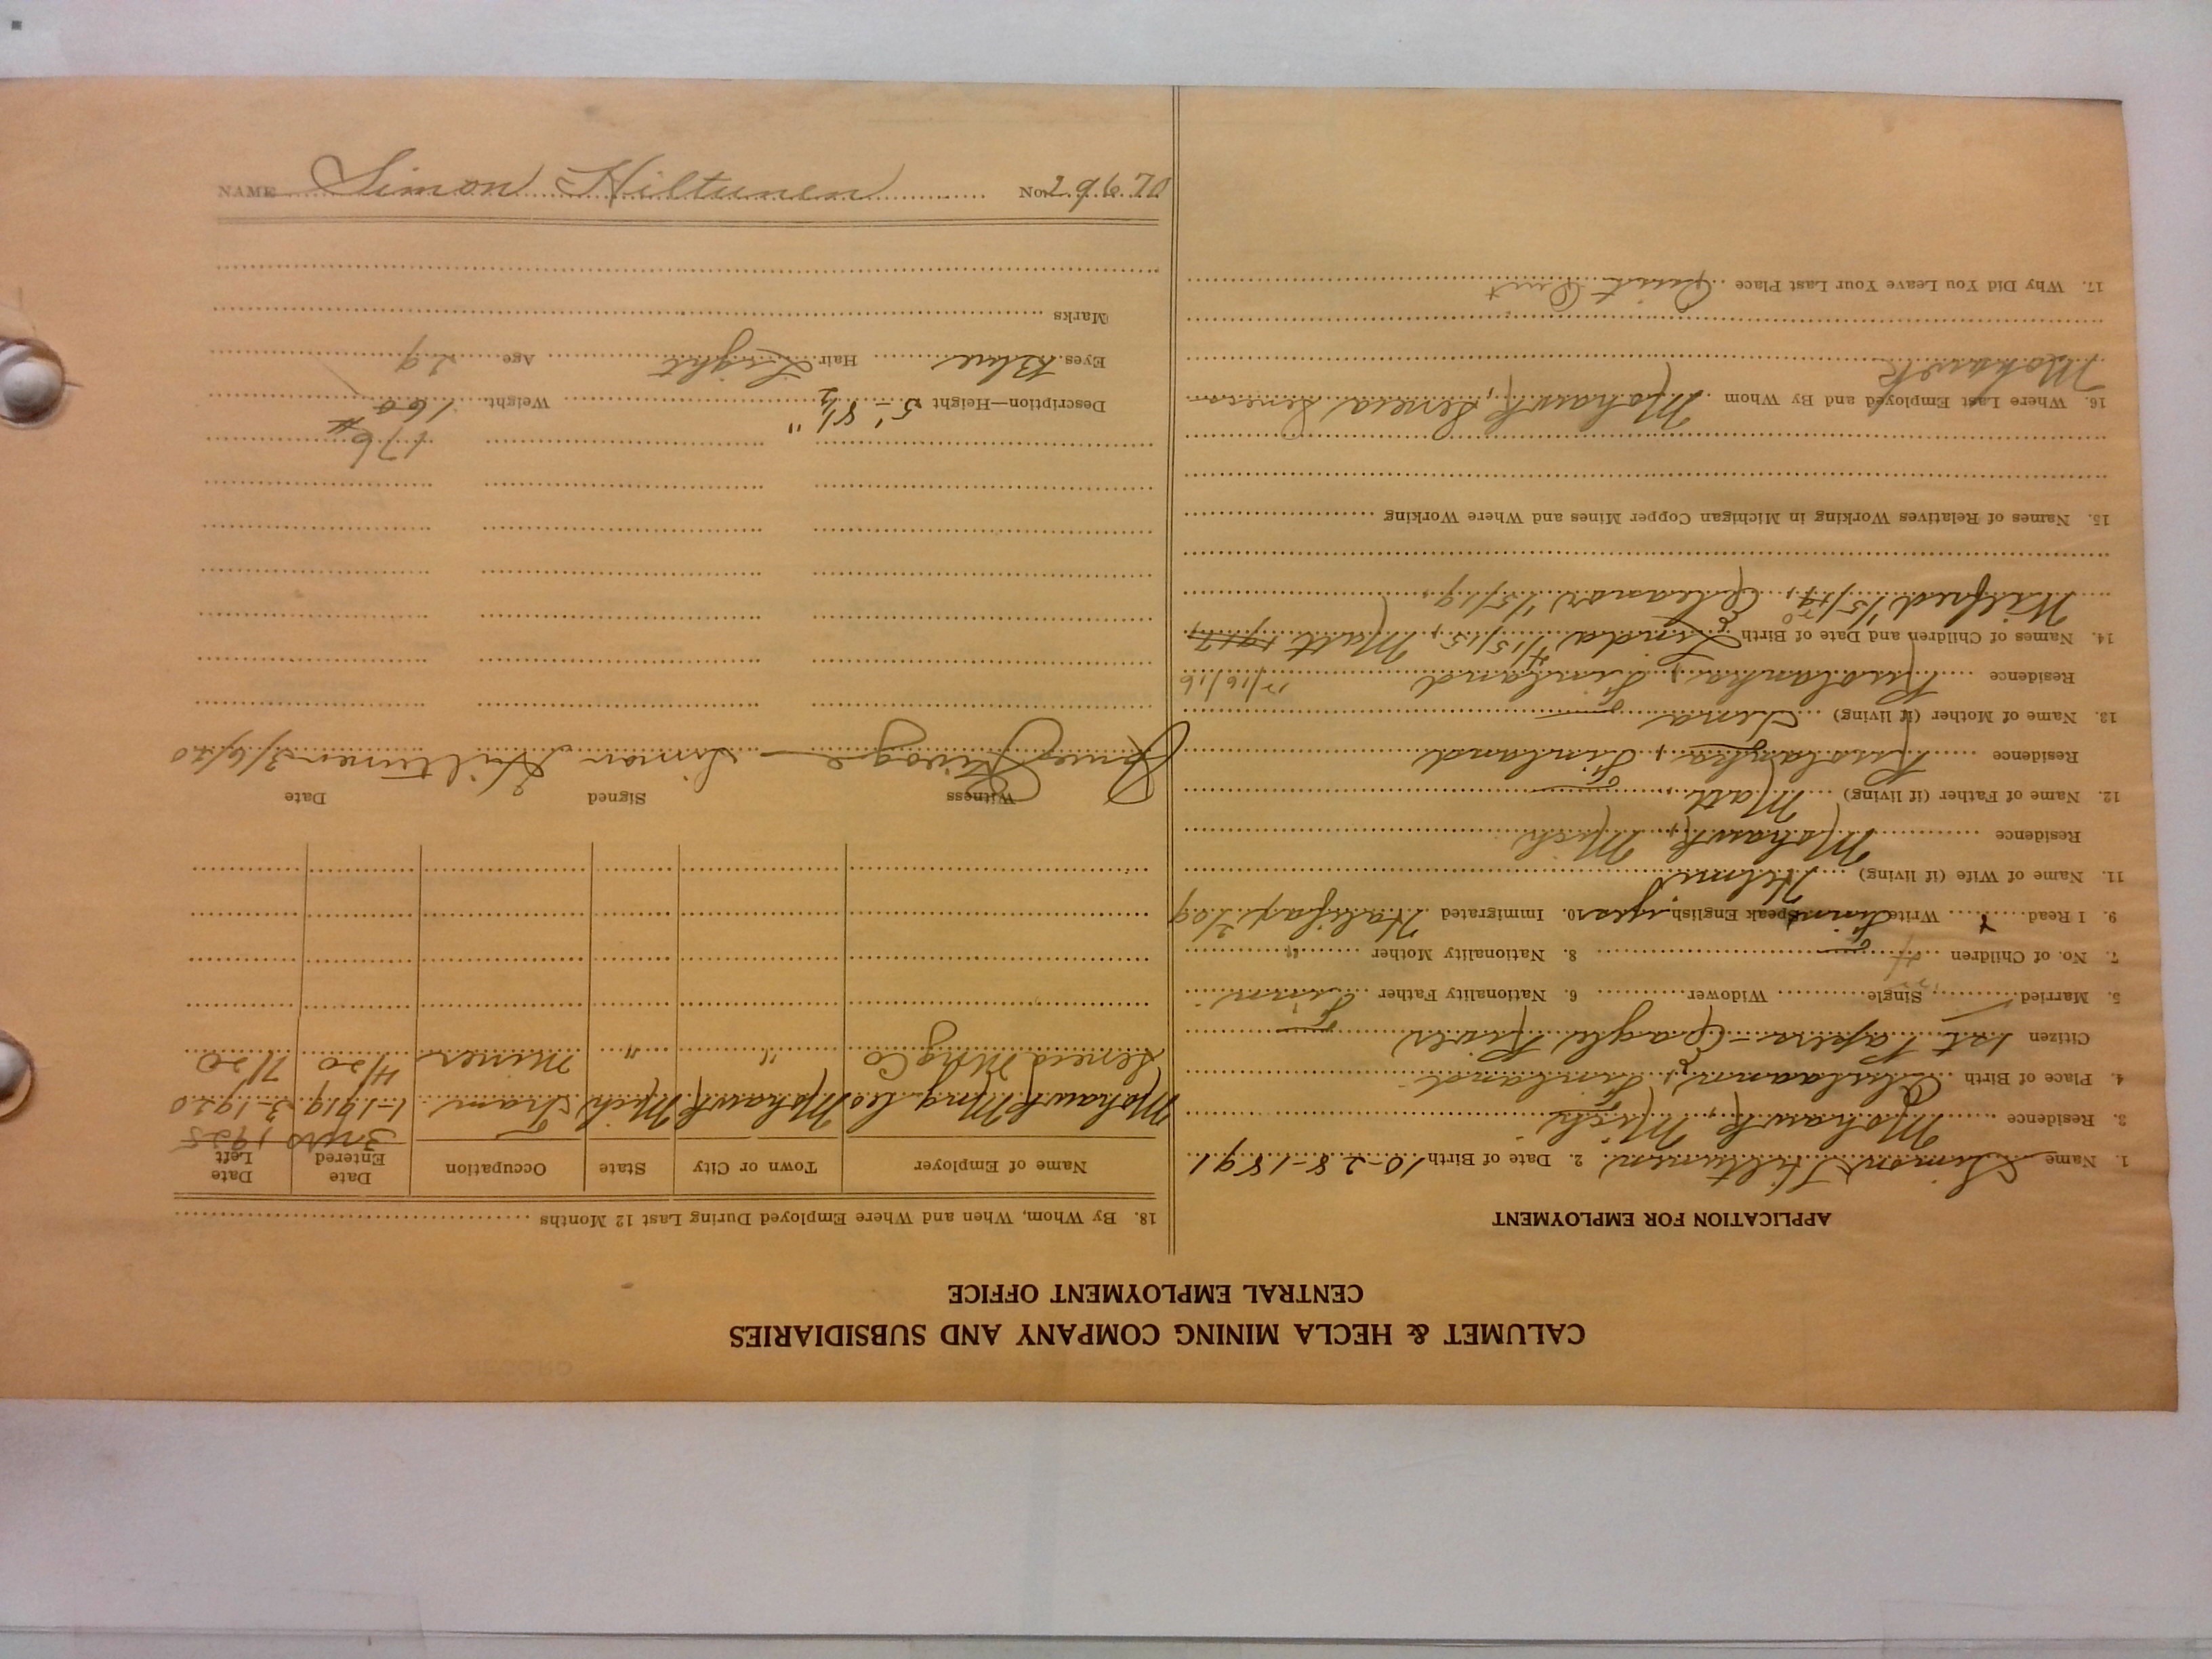 CALUMET & HECLA MINING COMPANY AND SUBSIDIARIES
CENTRAL EMPLOYMENT OFFICE
APPLICATION FOR EMPLOYMENT
1. Name Simon Hiltunen 2. Date of Birth 10-28-1891
3. Residence Mohawk, Mich
4. Place of Birth Finland
Citizen 1st Papers - Eagle River
5. Married Single Widower 6. Nationality Father Finn
7. No. of Children 8. Nationality Mother "
9. I Read Y Write Finn Speak English yes 10. Immigrated Halifax
11. Name of Wife (if living)
Residence Mohawk, Mich
12. Name of Father (if living) Matt
Residence Finland
13. Name of Mother (if living)
Residence Finland 12/16/16
14. Names of Children and Date of Birth Linda 4/15/15, Matt 1917,
Wilfred Eleanor 1/5/19,
15. Names of Relatives Working in Michigan Copper Mines and Where Working
16. Where Last Employed and By Whom Mohawk, Seneca Seneca
Mohawk
17. Why Did You Leave Your Last Place Quit
18. By Whom, When and Where Employed During Last 12 Months
Name of Employer Town or City State Occupation Date Entered Date Left
1925
Mohawk Mng Co Mohawk Mich Tram 1-1919 3-1920
Seneca Mng Co " " Miner 4/20 7/20
Witness Signed Date
Simon Hiltunen 3/6/20
176 #
Description—Height 5'-8½" Weight 160
Eyes Blue Hair Light Age 29
Marks
NAME Simon Hiltunen No. 29670